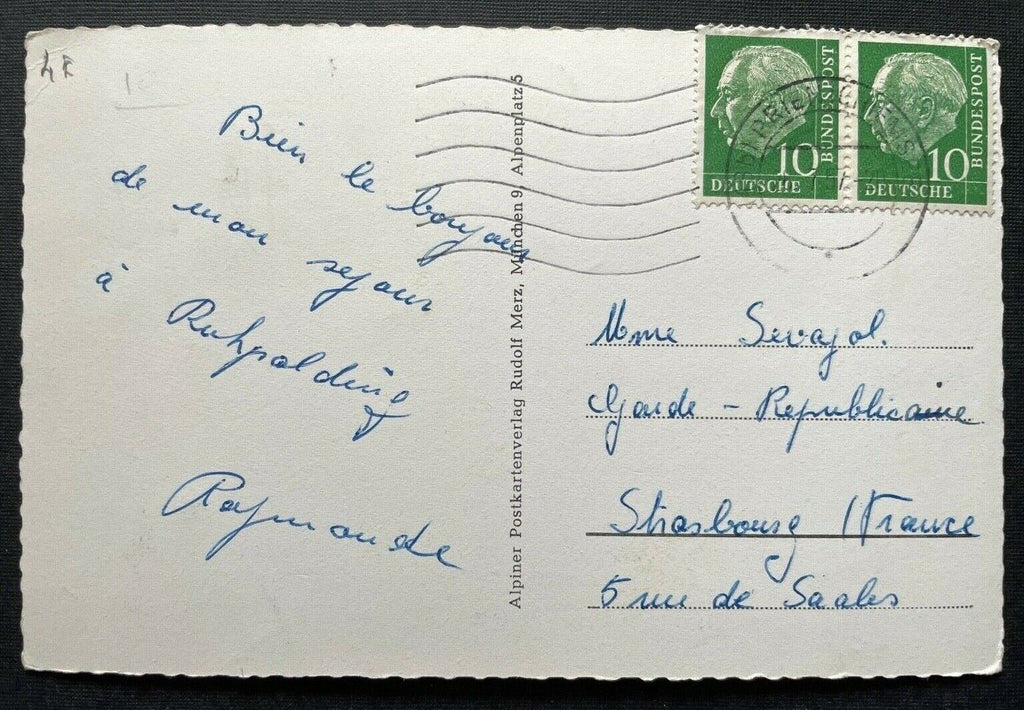 4F
Bien le bonjour
de mon sejour
à Ruhpolding
Raymonde
Alpiner Postkartenverlag Rudolf Merz, München 9, Alpenplatz 5
10
DEUTSCHE
BUNDESPOST
10
DEUTSCHE
BUNDESPOST
PRIEN
Mme Sevajol.
Garde - Republicaine
Strasbourg / France
5 rue de Saales